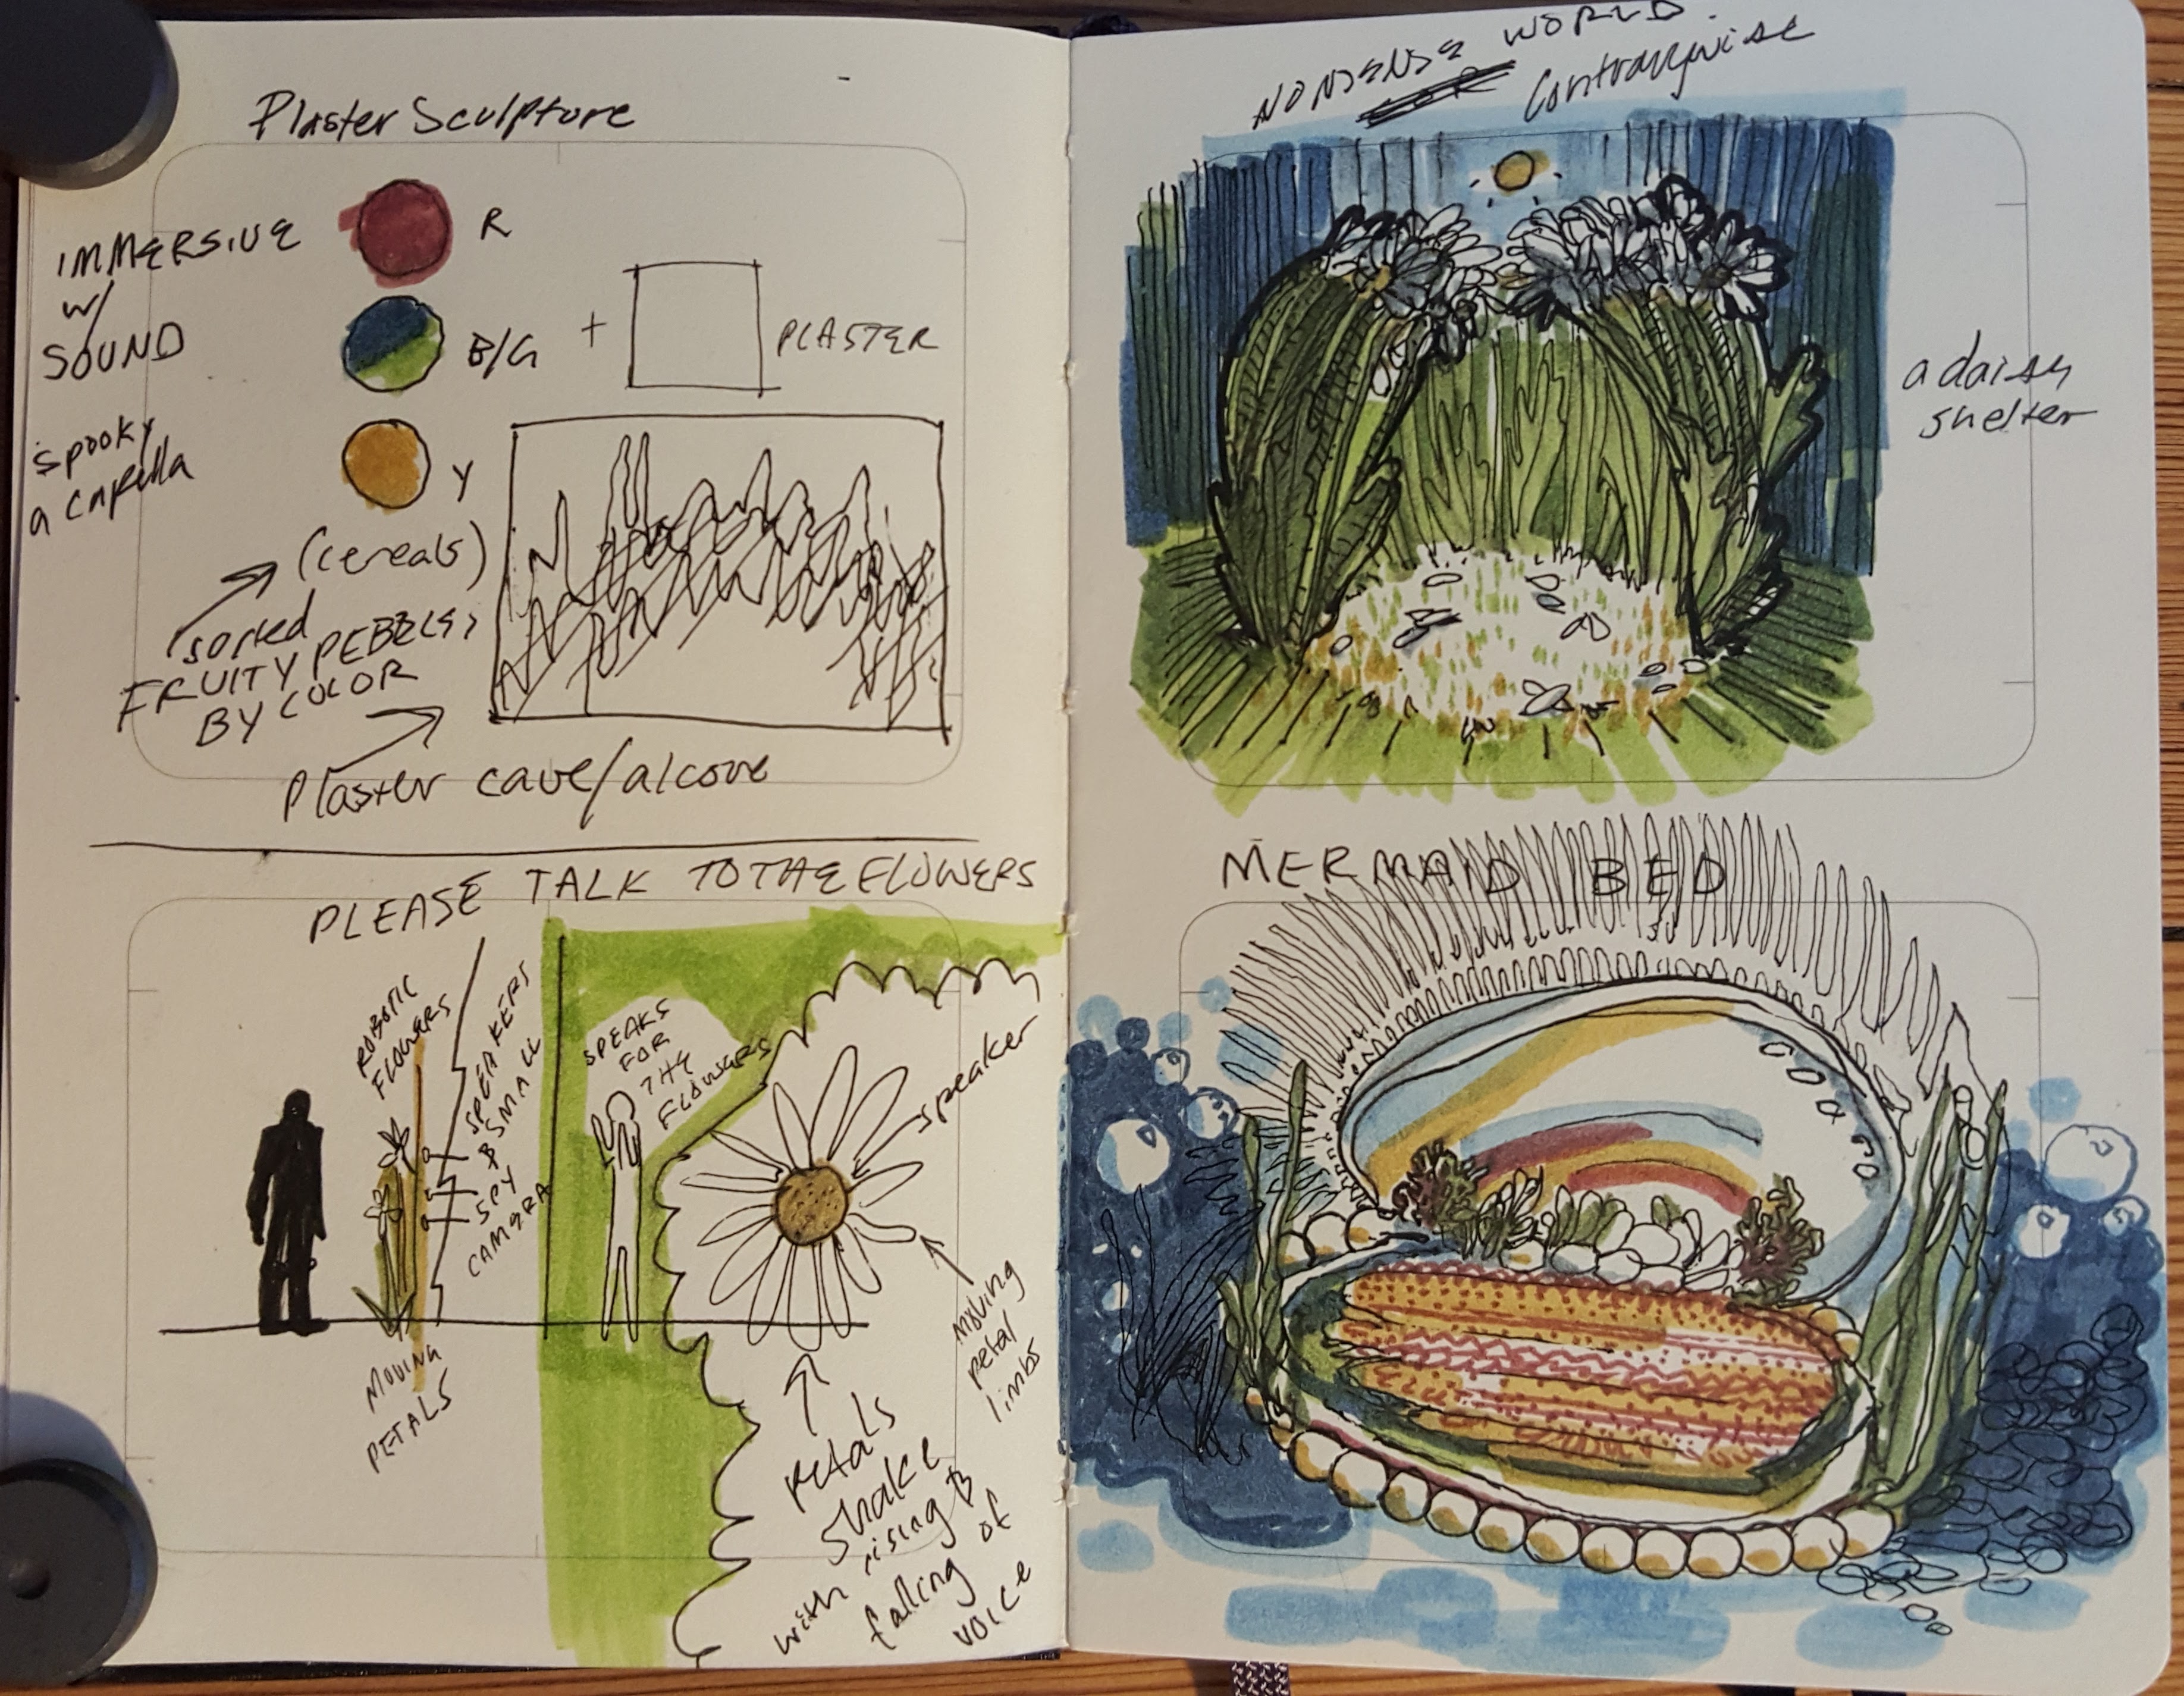 Plaster Sculpture
IMMERSIVE
w/
SOUND
spooky
a capella
R
B/G
+
PLASTER
Y
(cereals)
sorted
FRUITY PEBBLES
BY COLOR
Plaster cave/alcove
PLEASE TALK TO THE FLOWERS
ROBOTIC
FLOWERS
SPEAKERS
& SMALL
SPY
CAMERA
SPEAKS
FOR
THE
FLOWERS
speaker
MOVING
PETALS
moving
petal
limbs
petals
shake
with rising &
falling of
voice
NONSENSE WORLD.
Contrariwise
a daisy
shelter
MERMAID BED